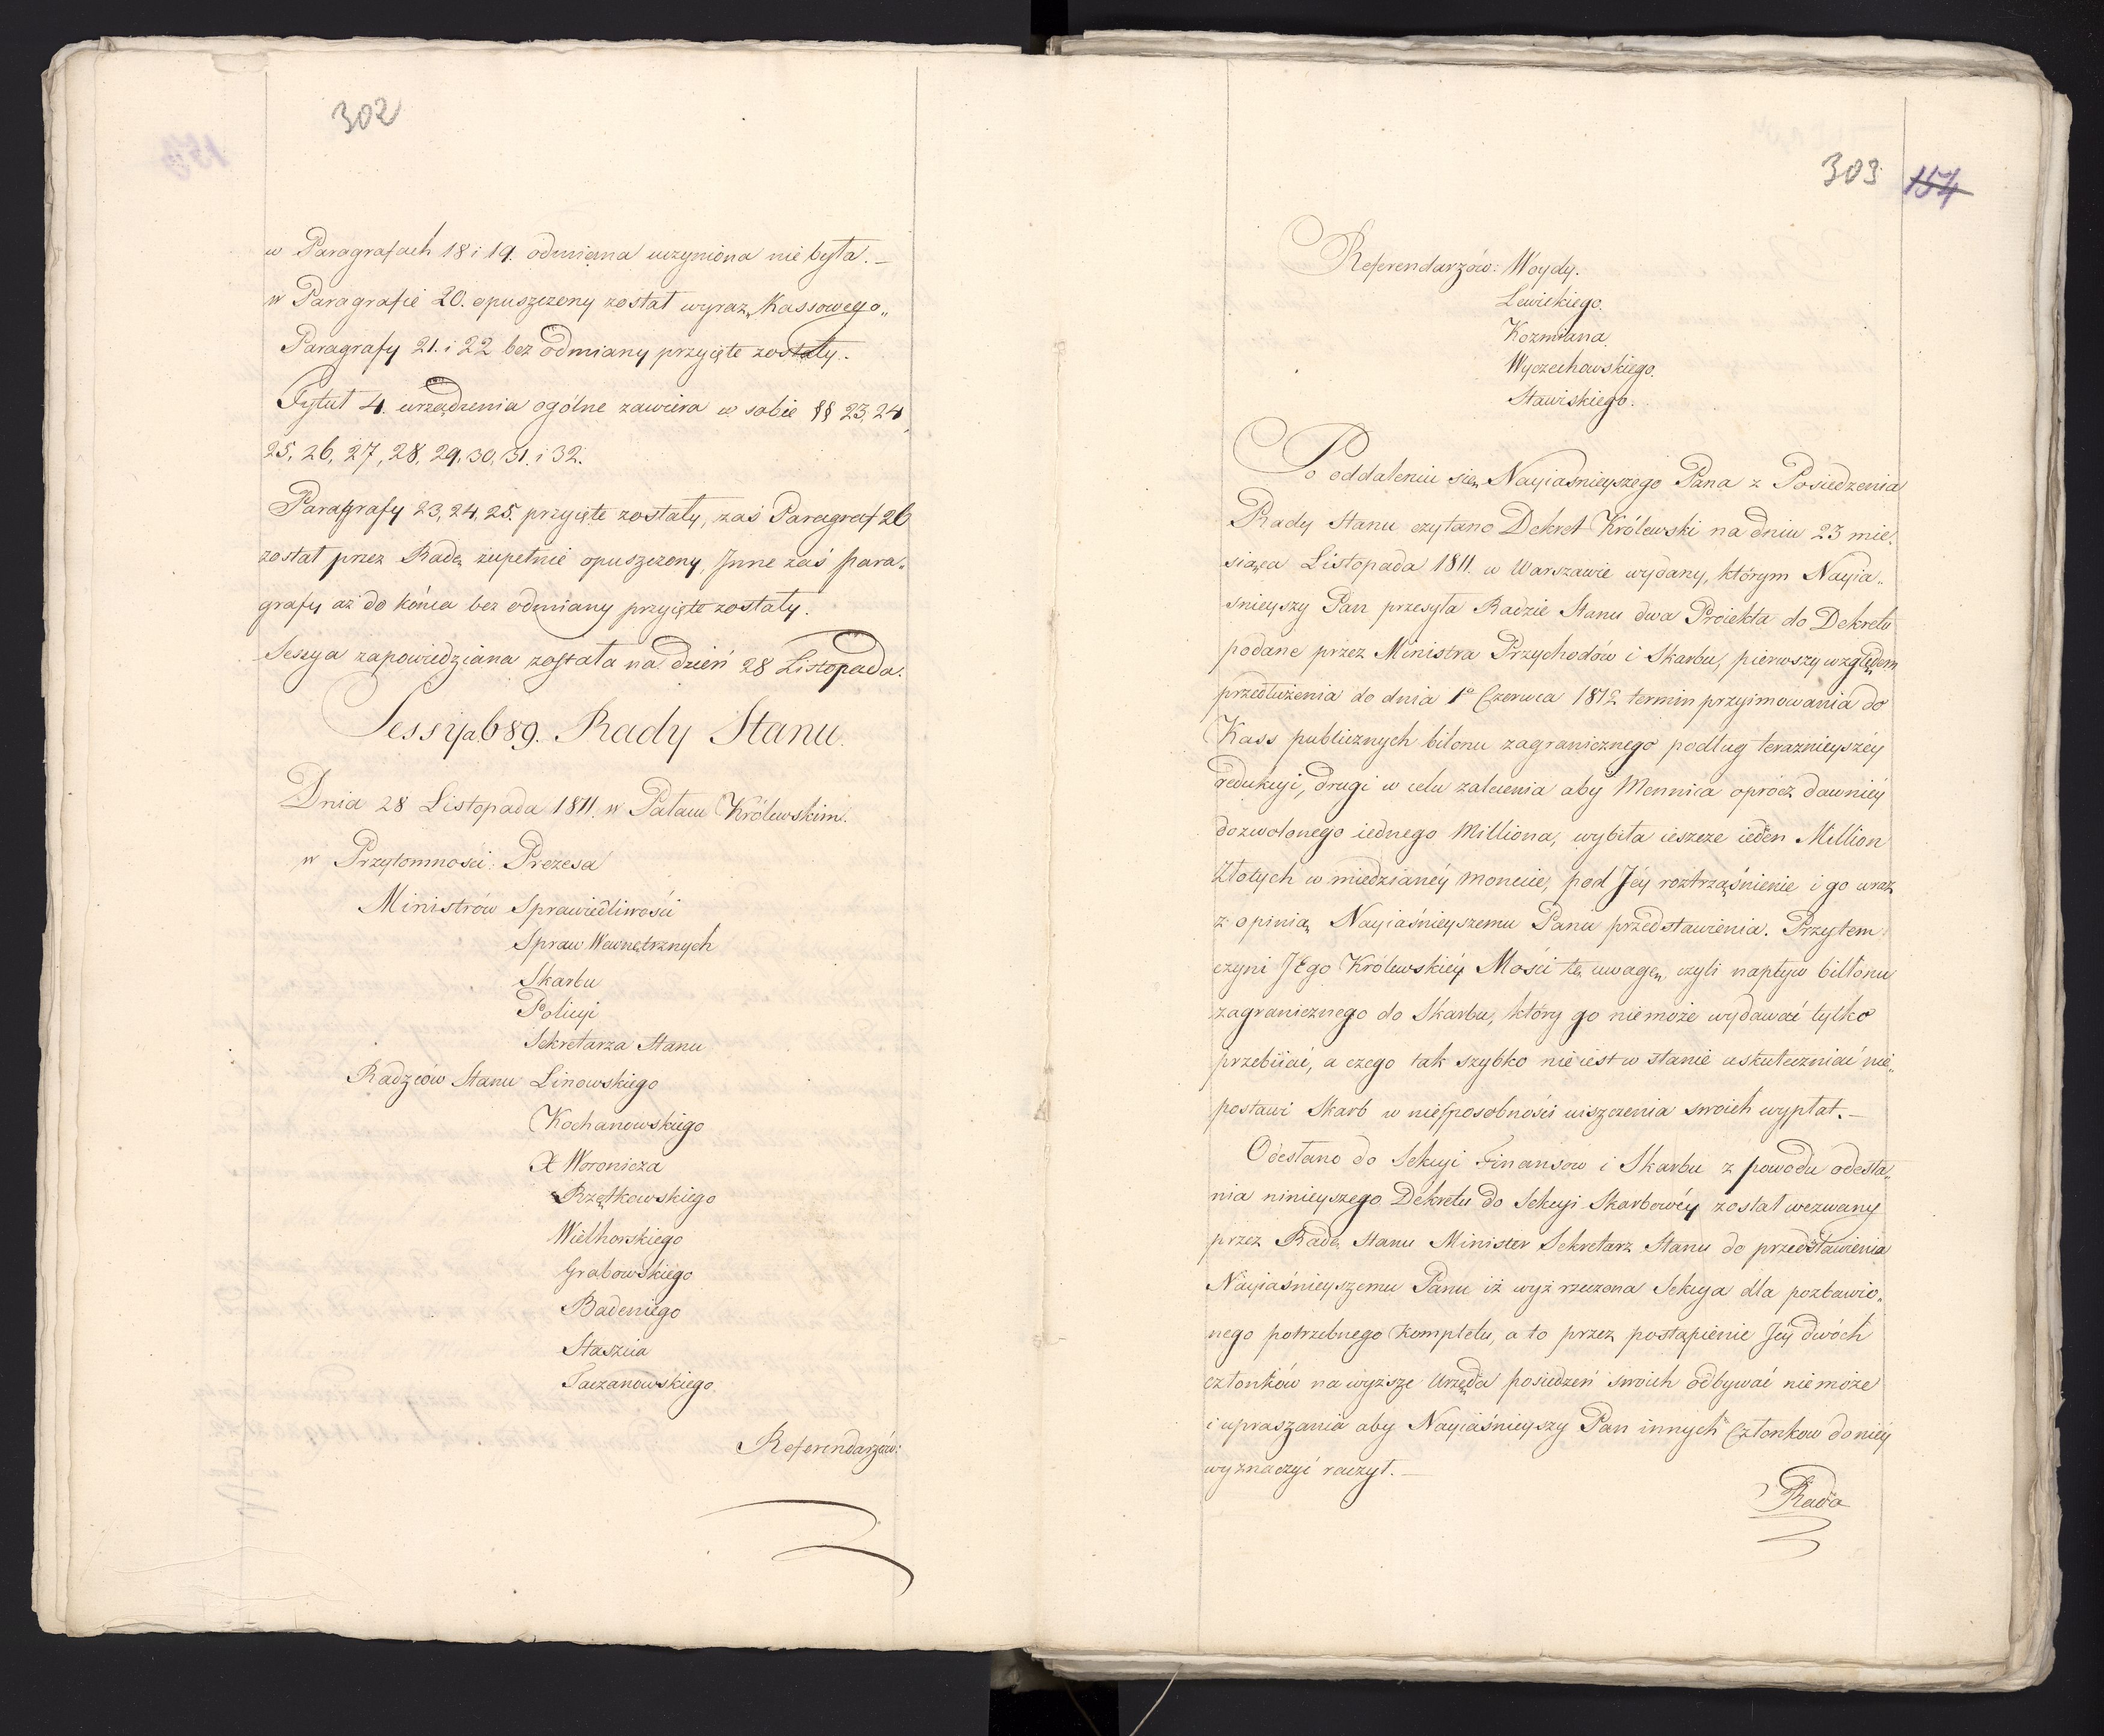 302
w Paragrafach 18 i 19. odmiana uczyniona nie była. —
w Paragrafie 20. opuszczony został wyraz „Kassowego„
Paragrafy 21. i 22 bez odmiany przyięte zostały.
Tytuł 4. urządzenia ogólne zawiera w sobie §§ 23, 24,
25, 26, 27, 28, 29, 30, 31. i 32.
Paragrafy 23, 24, 25. przyięte zostały, zaś Paragraf 26
został przez Radę zupełnie opuszczony, Inne zaś para„
grafy aż do końca bez odmiany przyięte zostały.
Sessya zapowiedziana została na dzień 28 Listopada.
Sessyja 689. Rady Stanu.
Dnia 28 Listopada 1811. w Pałacu Królewskim.
w Przytomności: Prezesa
Ministrów Sprawiedliwości
Spraw Wewnętrznych
Skarbu
Policyi
Sekretarza Stanu
Radzców Stanu Linowskiego
Kochanowskiego
X Woronicza
Rzętkowskiego
Wielhorskiego
Grabowskiego
Badeniego
Staszica
Taczanowskiego.
Referendarzów:
303 154
Referendarzów: Woydy.
Lewickiego.
Kozmiana.
Wyczechowskiego.
Stawiskiego.
Po oddaleniu się Nayiasnieyszego Pana z Posiedzenia
Rady Stanu czytano Dekret Królewski na dniu 23 mie„
siąca Listopada 1811. w Warszawie wydany, którym Nayia„
snieyszy Pan przesyła Radzie Stanu dwa Proiekta do Dekretu
podane przez Ministra Przychodów i Skarbu, pierwszy względem
przedłużenia do dnia 1º Czerwca 1812 termin przyimowania do
Kass publicznych bilonu zagranicznego podług teraznieyszéy
redukcyi, drugi w celu zalecenia aby Mennica oprócz dawniéy
dozwolonego iednego Milliona, wybiła ieszcze ieden Million
Złotych w miedzianéy monecie, pod Jéy roztrząśnienie i go wraz
z opinią Nayiaśnieyszemu Panu przedstawienia. Przytem
czyni JEgo Królewskiéy Mości tę uwagę, czyli napływ billonu
zagranicznego do Skarbu, który go niemoże wydawać tylko
przebiiać, a czego tak szybko nie iest w stanie uskuteczniać nie„
postawi Skarb w niesposobności uiszczenia swoich wypłat. —
Odesłano do Sekcyi Finansow i Skarbu z powodu odesła„
nia ninieyszego Dekretu do Sekcyi Skarbowéy został wezwany
przez Radę Stanu Minister Sekretarz Stanu do przedstawienia
Nayiaśnieyszemu Panu iż wyż rzeczona Sekcya dla pozbawio„
nego potrzebnego Kompletu, a to przez postąpienie Jéy dwóch
członków na wyższe Urzęda posiedzeń swoich odbywać niemoże
i upraszania aby Nayiaśnieyszy Pan innych Członkow do niéy
wyznaczyć raczył. —
Rada